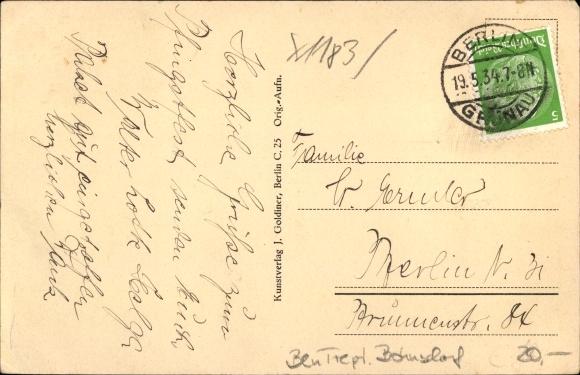 Herzliche Grüße zum
Pfingstfest senden Euch
Paket gut eingetroffen
herzlichen Dank
Kunstverlag J. Goldiner, Berlin C. 25 Orig.-Aufn.
x1183/
BERLIN
19.5.34.7-8N
GRÜNAU
Deutsches Reich
5
Familie
Berlin N. 31
Brunnenstr. 84
Bln Trept. Bohnsdorf
20,-